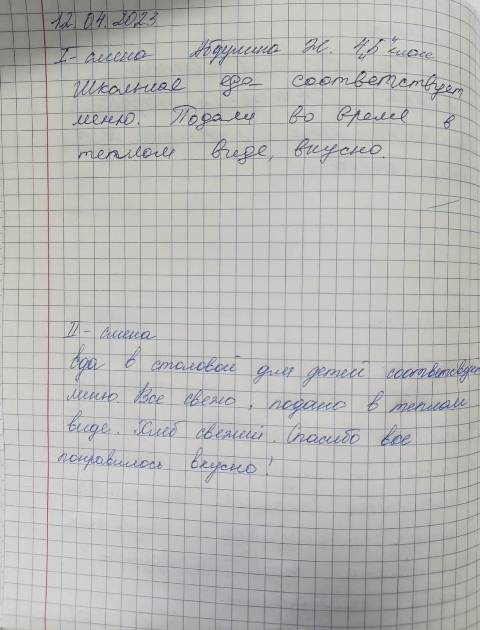 12.04.2023
I-смена Абдулина Ж. 4,5 "класс
Школьная еда соответствует
меню. Подали во время в
теплом виде, вкусно.
II-смена
Еда в столовой для детей соответствует
меню. Все свежо, подано в теплом
виде. Хлеб свежий. Спасибо все
понравилось вкусно!